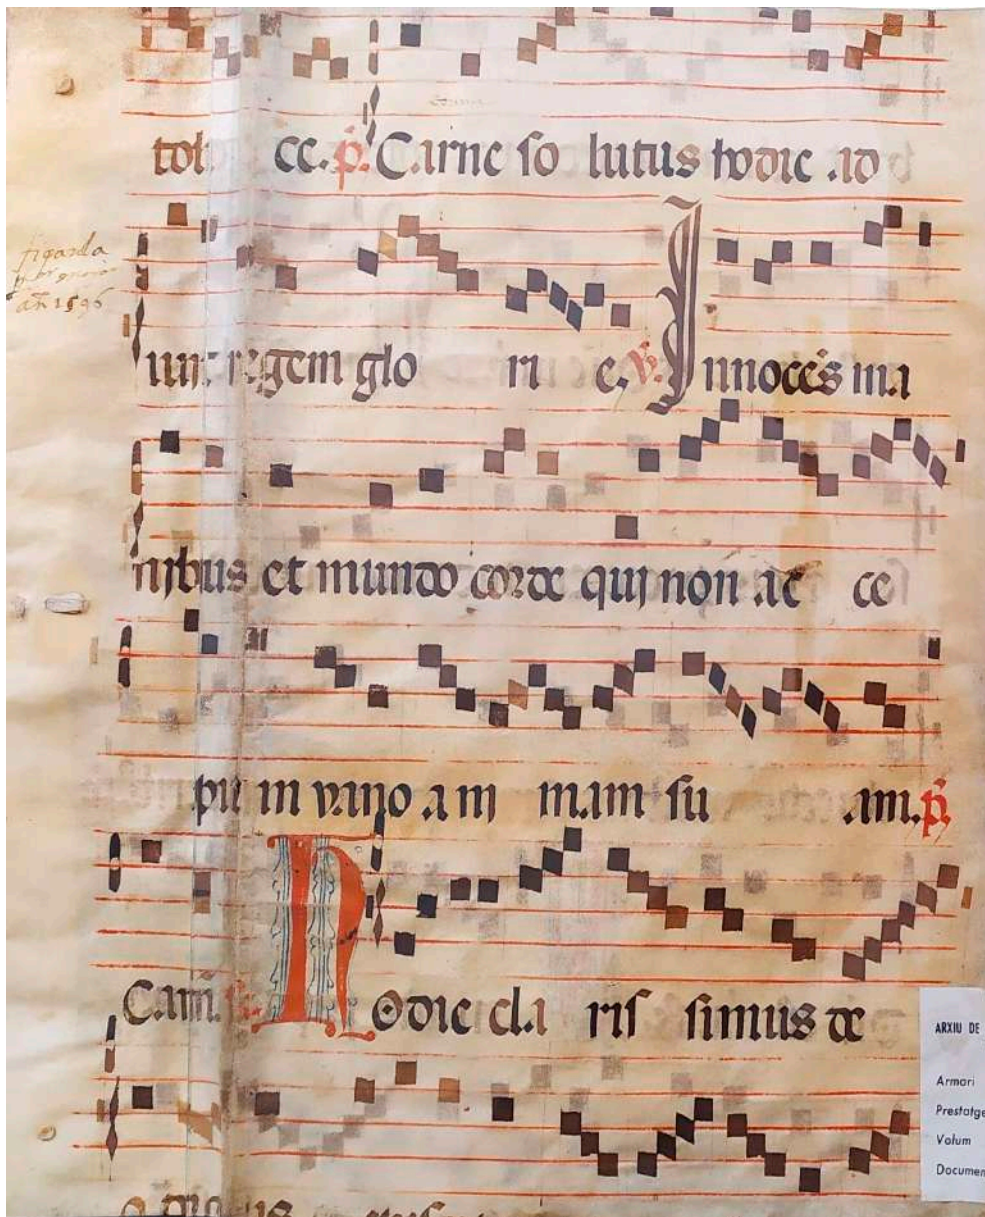 tol cc. p̃. Carne so lutus hodie ad
figarola
añ 1596
iunt regem glo ri e. ṽ. Innocẽs ma
nibus et mundo corde qui non ac ce
pit in vano a ni mam su am. p̃.
Carn. Hodie cla ris simus de
ARXIU DE
Armari
Prestatge
Volum
Documen